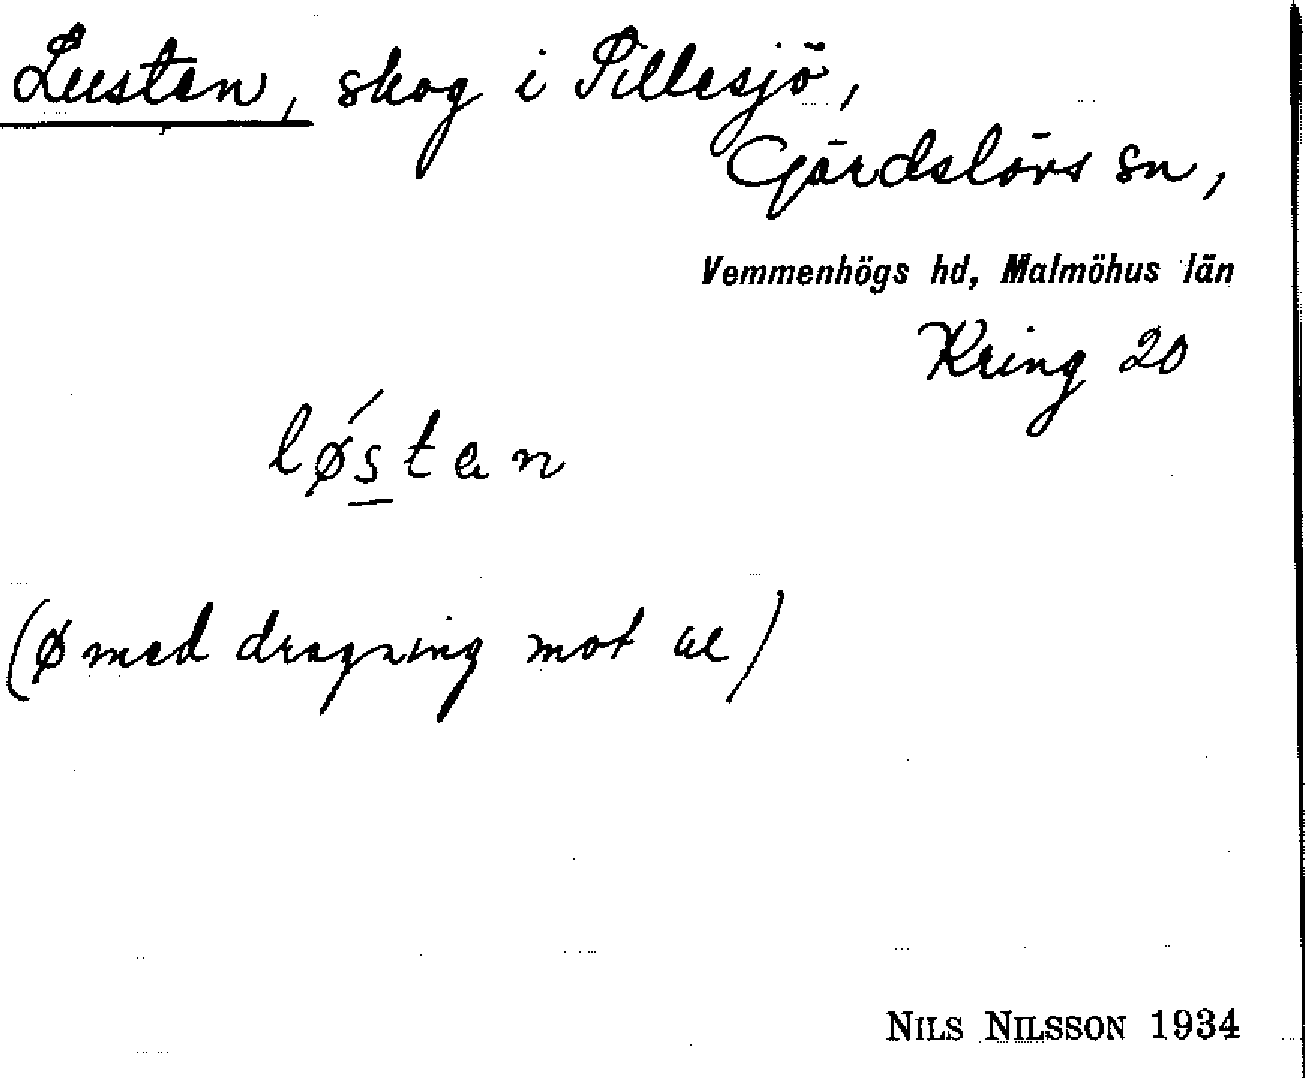 Lusten, skog i Pillesjö,
Gärdslövs sn,
Vemmenhögs hd, Malmöhus län
Kring 20
løstan
(ø med dragning mot æ)
NILS NILSSON 1934